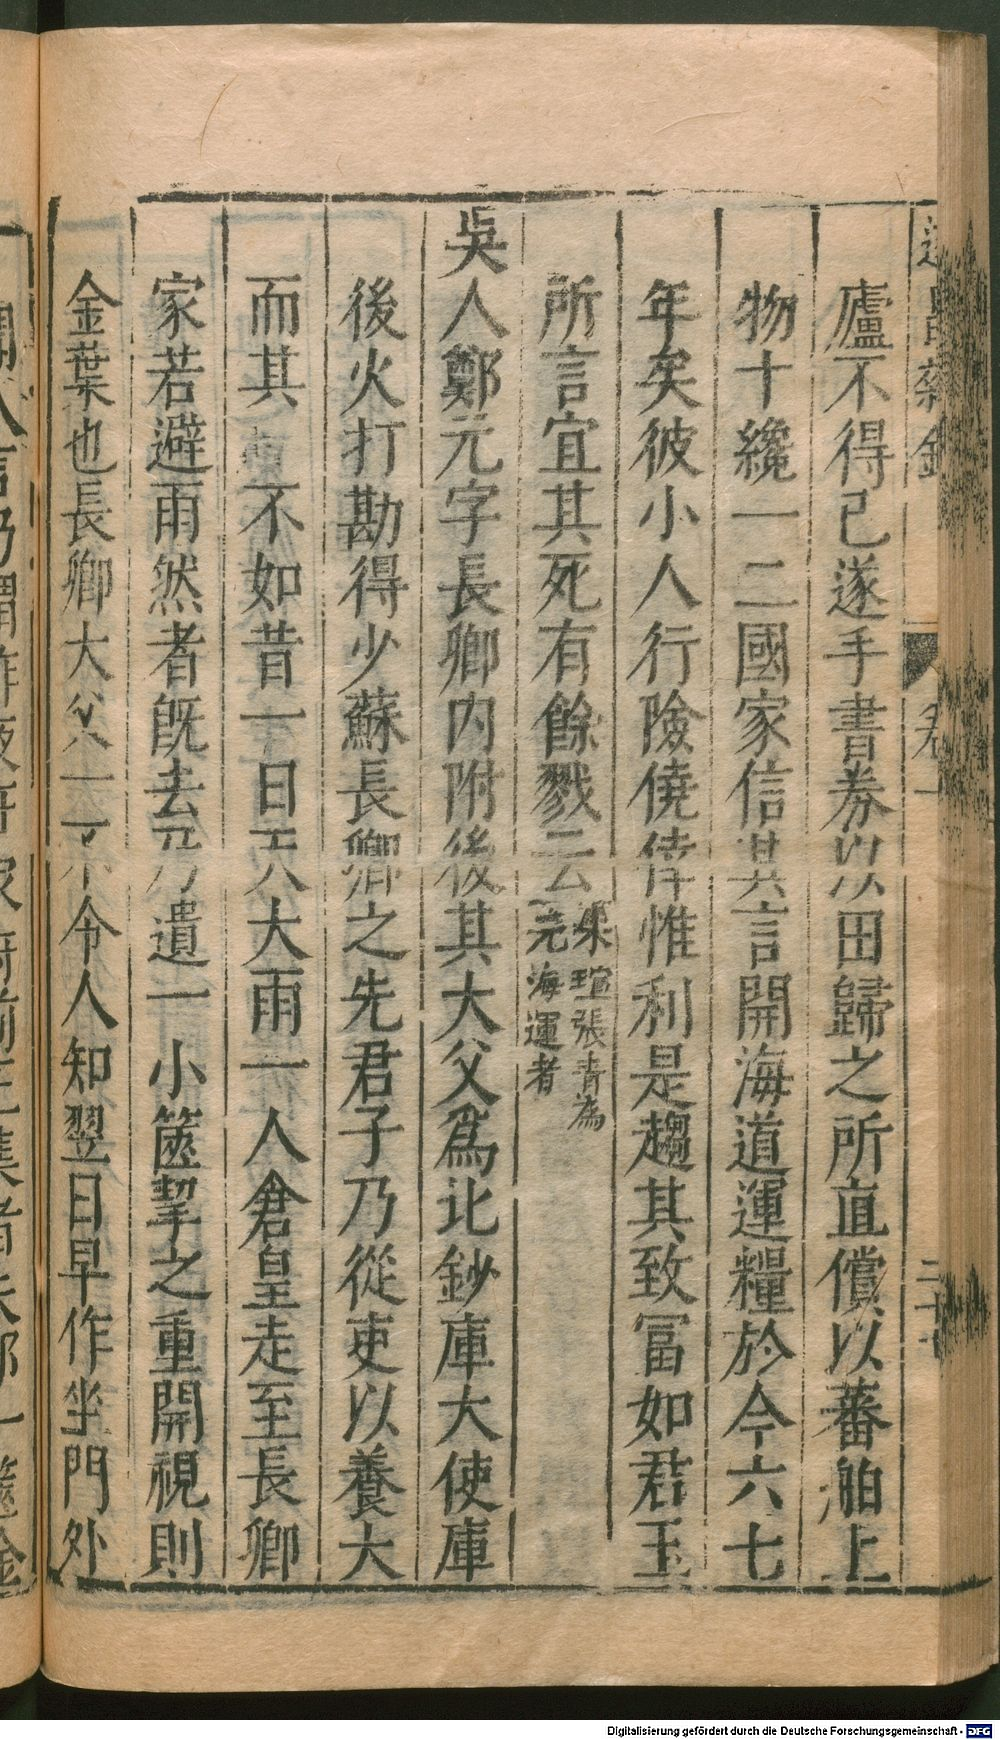 廬不得已遂手書券以田歸之所直償以蕃舶上
物十纔一二國家信其言開海道運糧於今六七
年矣彼小人行險僥倖惟利是趨其致冨如君玉
所言宜其死有餘戮云
朱瑄張青為
元海運者
吳人鄭元字長卿内附後其大父爲比鈔庫大使庫
後火打勘得少蘇長卿之先君子乃從吏以養大
而其不如昔一日天大雨一人倉皇走至長卿
家若避雨然者既去乃遺一小篋挈之重開視則
金葉也長卿大父一不令人知翌日早作坐門外
遂昌雜錄
卷一
Digitalisierung gefördert durch die Deutsche Forschungsgemeinschaft - DFG